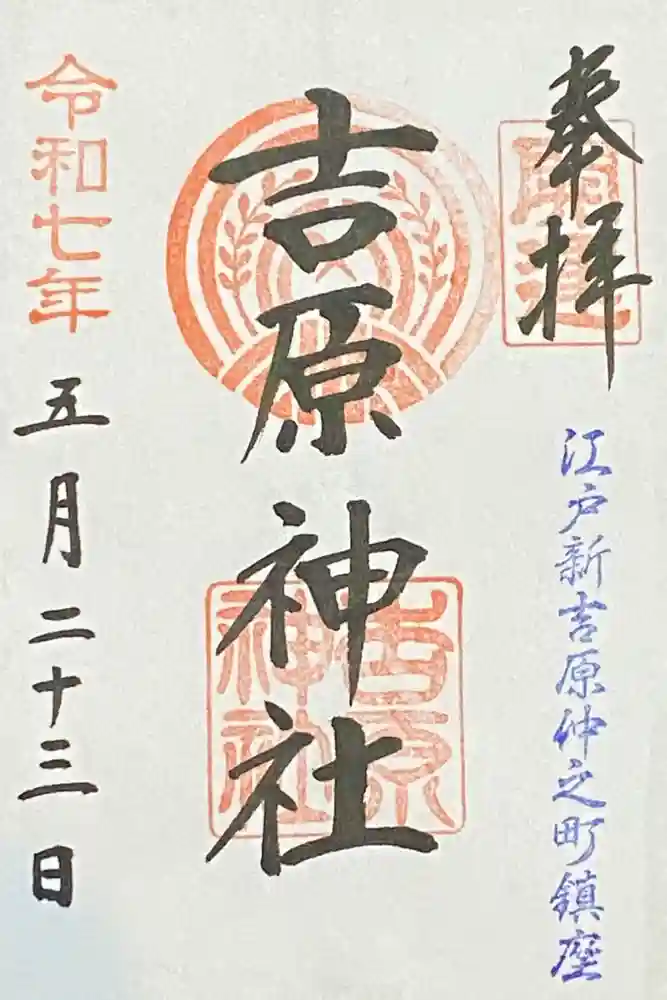 奉拝
開運
江戸新吉原仲之町鎮座
吉原神社
吉原
神社
令和七年
五月二十三日